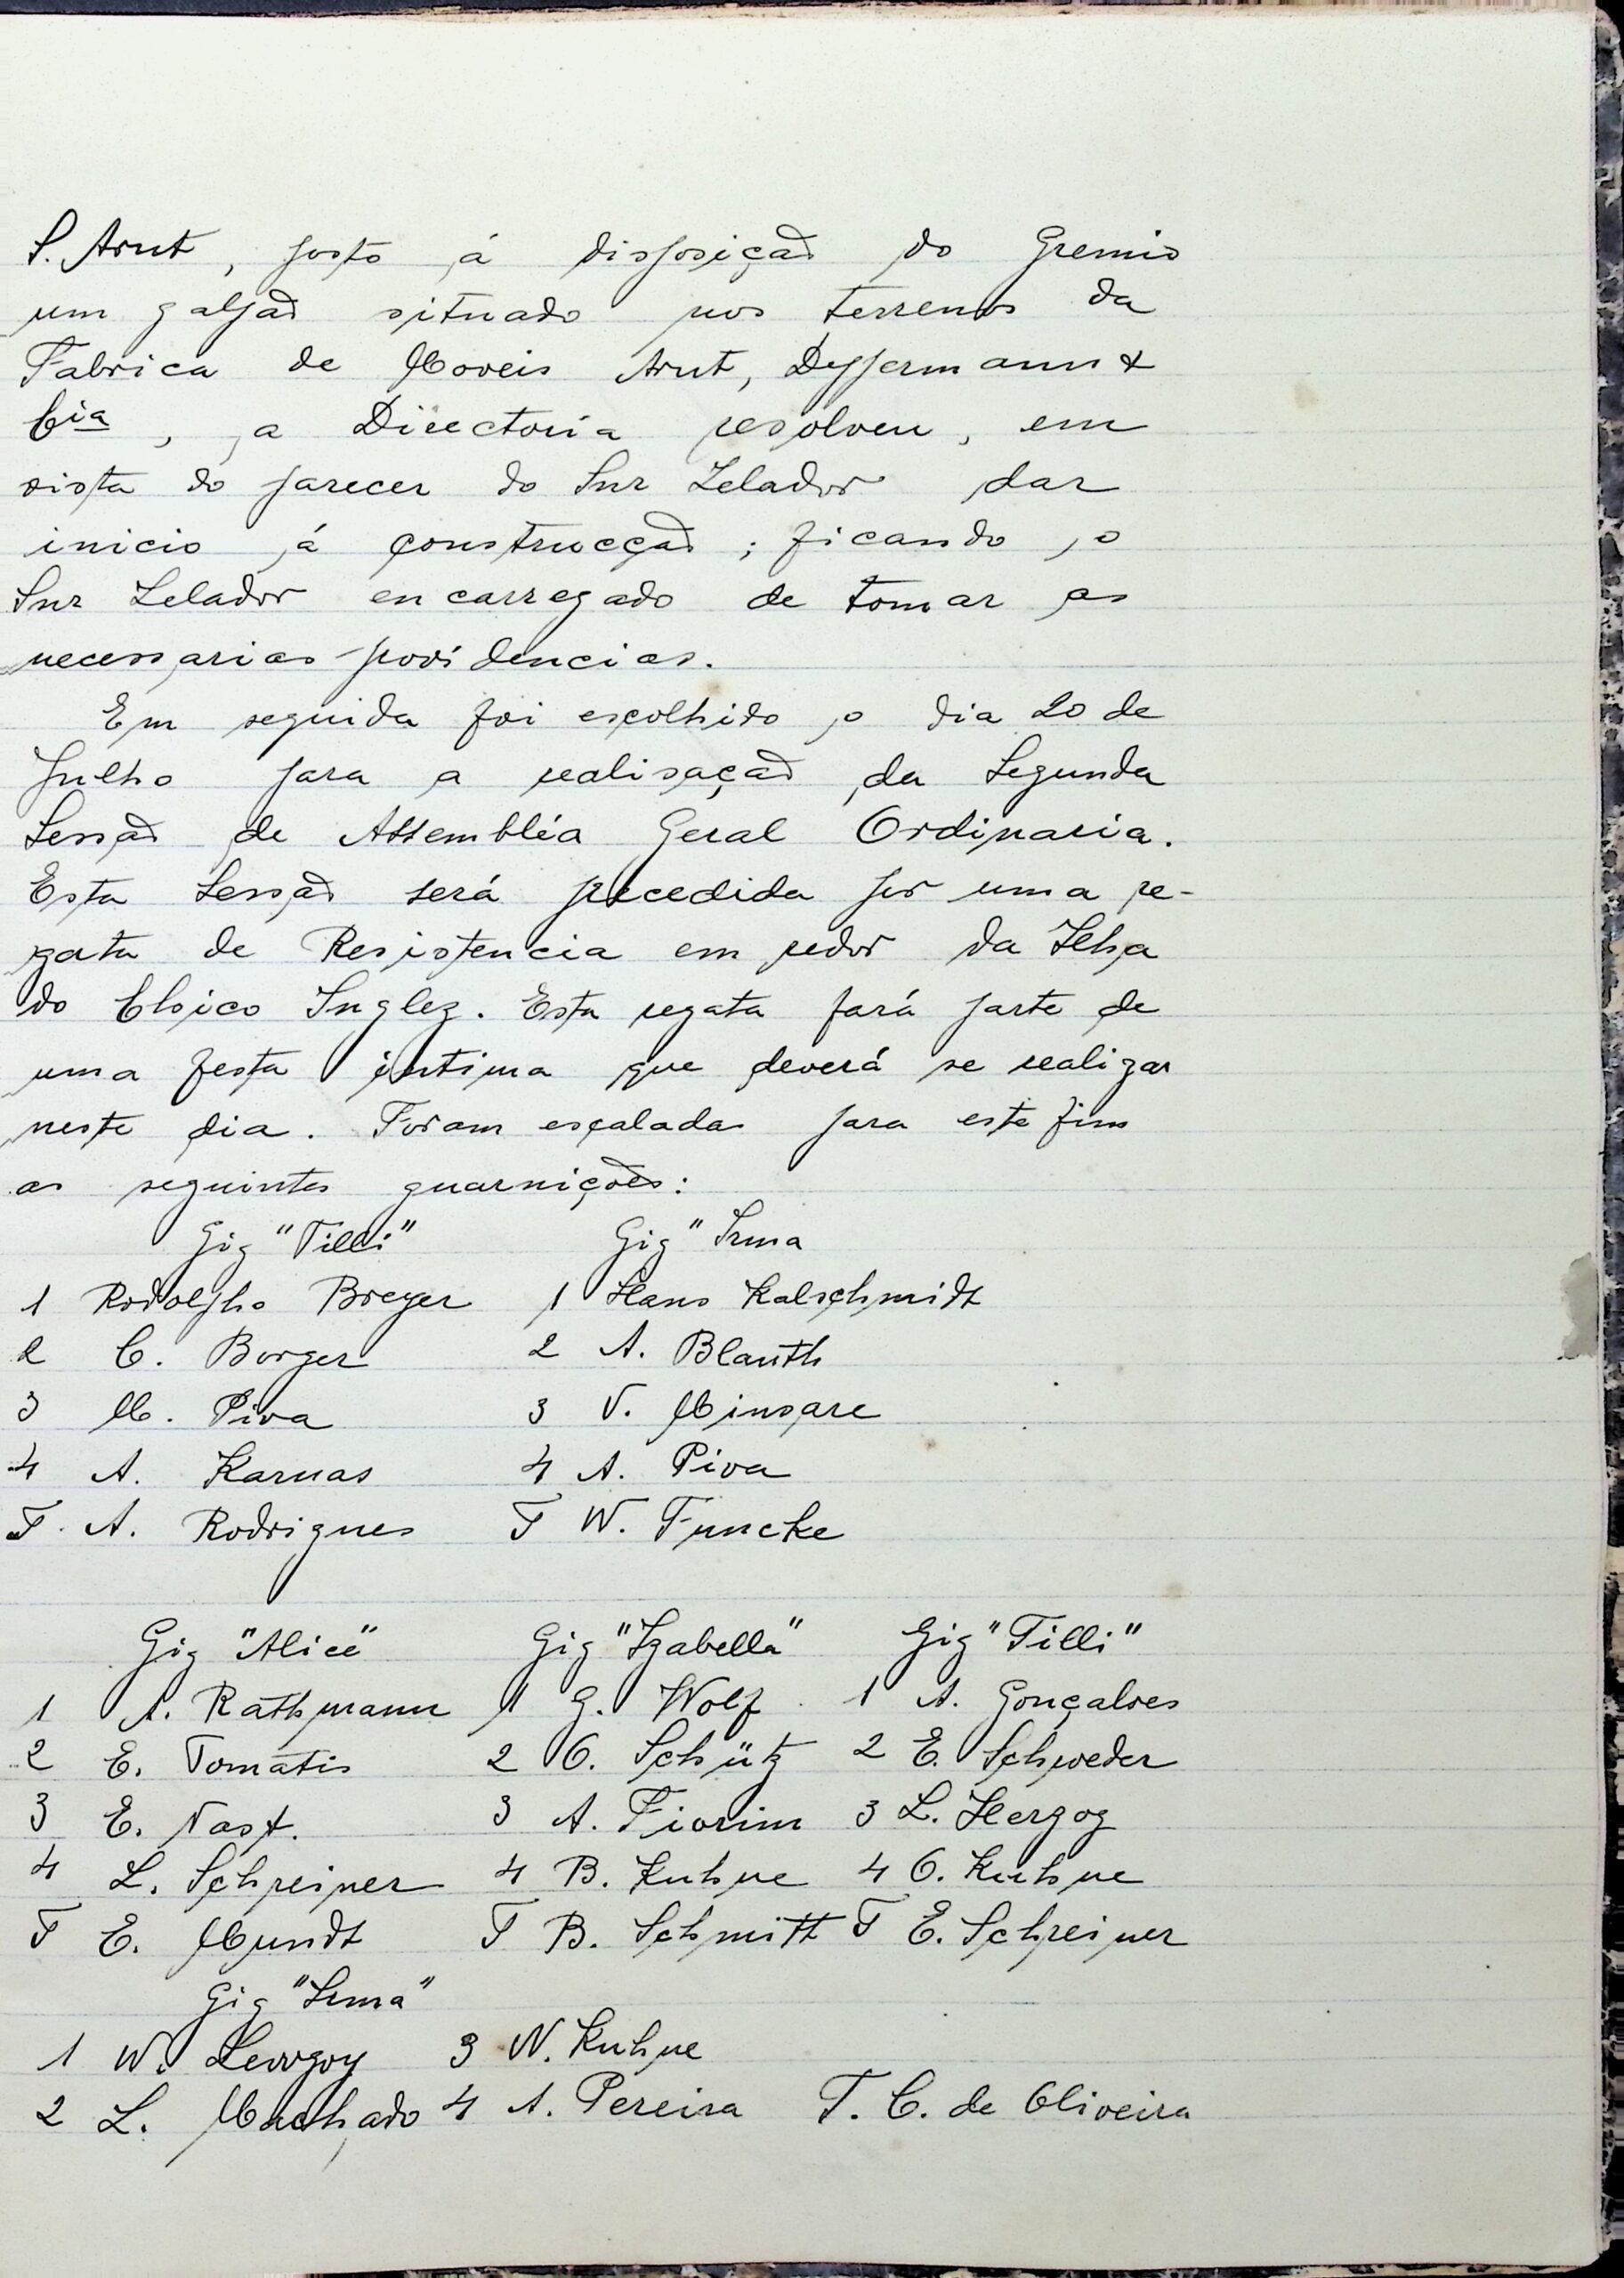 S. Arnt, posto á disposição do Gremio
um galpão situado nos terrenos da
Fabrica de Moveis Arnt, Deppermann &
Cia, a Directoria resolveu, em
vista do parecer do Snr Zelador dar
inicio á construcção; ficando o
Snr Zelador encarregado de tomar as
necessarias providencias.
Em seguida foi escolhido o dia 20 de
Julho para a realisação da Segunda
Sessão de Assembléa Geral Ordinaria.
Esta Sessão será precedida por uma re-
gata de Resistencia em redor da Ilha
do Chico Inglez. Esta regata fará parte de
uma festa intima que deverá se realizar
neste dia. Foram escaladas para este fim
as seguintes guarnições:
Gig "Tilli" Gig "Irma
1 Rodolpho Breyer 1 Hans Kalschmidt
2 C. Borger 2 A. Blauth
3 M. Piva 3 V. Minsare
4 A. Karnas 4 A. Piva
T. A. Rodrigues T W. Funcke
Gig "Alice" Gig "Izabella" Gig "Tilli"
1 A. Rathmann 1 G. Wolf 1 A. Gonçalves
2 E. Tomatis 2 O. Schütz 2 E. Schweder
3 E. Nast. 3 A. Fiorim 3 L. Herzog
4 L. Schreiner 4 B. Kuhne 4 O. Kuhne
T E. Mundt T B. Schmitt T E. Schreiner
Gig "Irma"
1 W. 3 W. Kuhne
2 L. Machado 4 A. Pereira T. C. de Oliveira